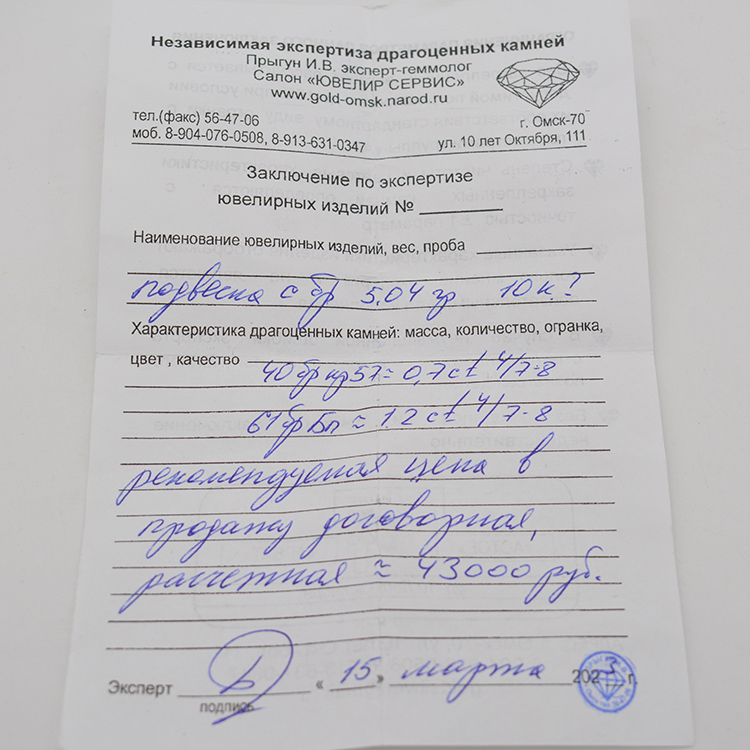 Независимая экспертиза драгоценных камней
Прыгун И.В. эксперт-геммолог
Салон «ЮВЕЛИР СЕРВИС»
www.gold-omsk.narod.ru
тел.(факс) 56-47-06 г. Омск-70
моб. 8-904-076-0508, 8-913-631-0347 ул. 10 лет Октября, 111
Заключение по экспертизе
ювелирных изделий №
Наименование ювелирных изделий, вес, проба
подвеска с бр 5,04 гр 10 к?
Характеристика драгоценных камней: масса, количество, огранка,
цвет , качество
40 бр кр57 ≈ 0,7 ct 4/7-8
61 бр Бп ≈ 1.2 ct 4/7-8
рекомендуемая цена в
продажу договорная,
расчетная ≈ 43000 руб.
Эксперт « 15 » марта 2023 г.
подпись